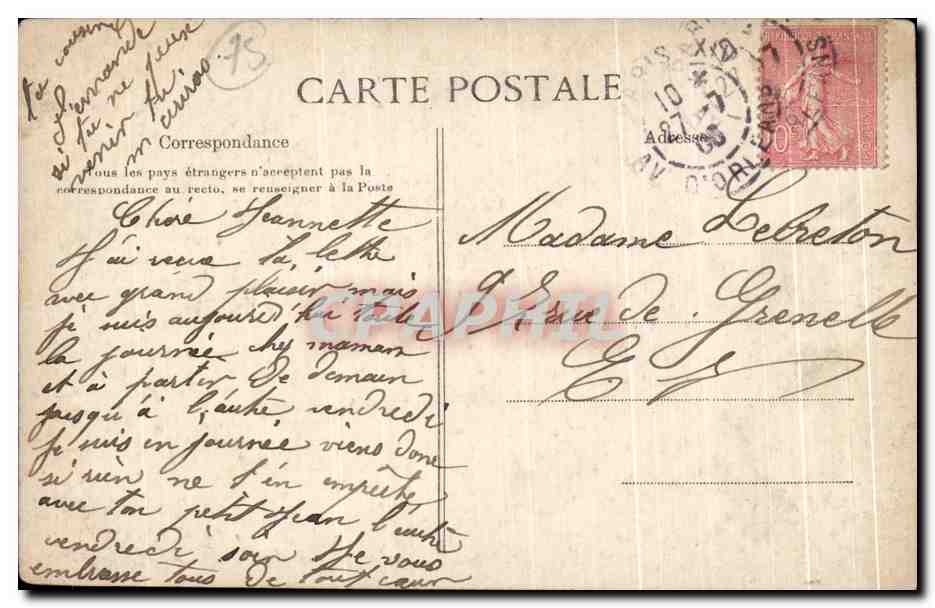 ta cousine
Fernande
si tu ne peux
venir tu
m'auras.
75
CARTE POSTALE
Correspondance
Tous les pays étrangers n'acceptent pas la
correspondance au recto, se renseigner à la Poste
Adresse
PARIS
10
27
AV. D'ORLEANS
CPAPHIL
Chère Jeannette
J'ai reçue ta lettre
avec grand plaisir mais
je suis aujourd'hui toute
la journée chez maman
et à partir de demain
jusqu'à l'autre vendredi
je suis en journée viens donc
si rien ne t'en empêche
avec ton petit Jean l'autre
vendredi soir Je vous
embrasse tous de tout cœur
Madame Lebreton
rue de Grenelle
E V